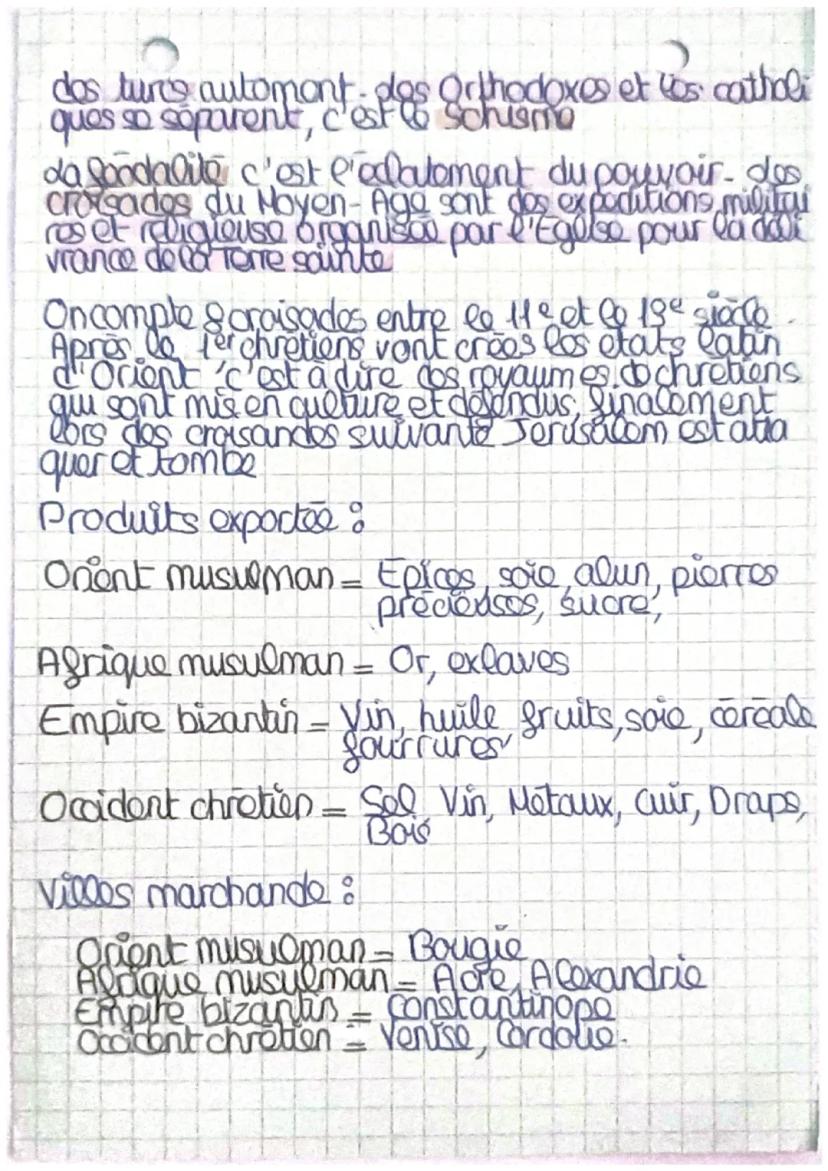 des turcs automont. des Orthodoxes et les catholi
ques se séparent, c'est le Schisme
la féodalité c'est l'éclatement du pouvoir - des
croisades du Moyen-Age sont des expeditions militai
res et religieuse organisée par l'Eglise pour la déli
vrance de la Terre sainte
On compte 8 croisades entre le 11e et le 13e siècle.
Après la 1er chretiens vont crées les etats latin
d'Orient 'c'est à dire des royaumes de chretiens
qui sont mis en culture et défendus, finalement
lors des croisandes suivante Jerusalem est atta
quer et tombe
Produits exportée :
Orient musulman = Epices, soie, alun, pierres
précieuses, sucre,
Afrique musulman = Or, exlaves
Empire bizantin = Vin, huile fruits, soie, céréale
fourrures
Occident chretien = Sel Vin, Métaux, Cuir, Draps,
Bois
Villes marchande :
Orient musulman = Bougie
Afrique musulman = Acre, Alexandrie
Empire bizantin = Constantinope
Occident chrétien = Venise, Cordoue.